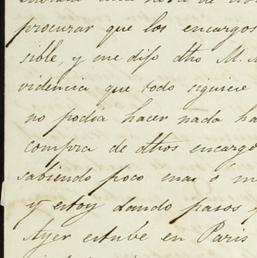 procurar que los encargos
sible, y me dijo dho M. M
videncia que todo siguiese
no podia hacer nada ha
compra de dhos encargo
sabiendo poco mas ó m
y estoy dando pasos
Ayer estube en Paris